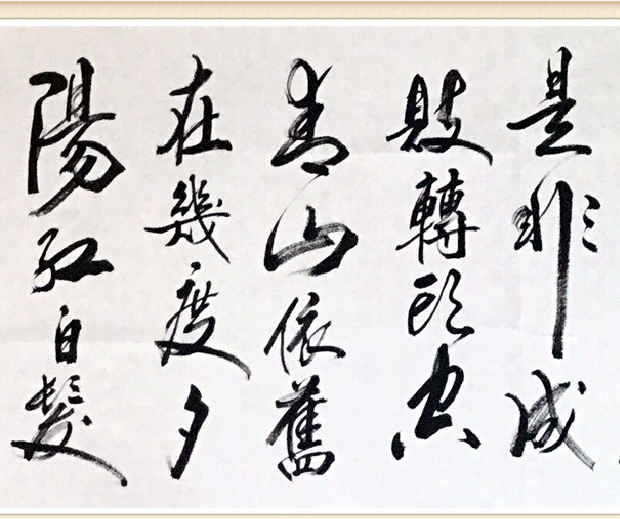 是非成
敗轉頭空
青山依舊
在幾度夕
陽紅白髮